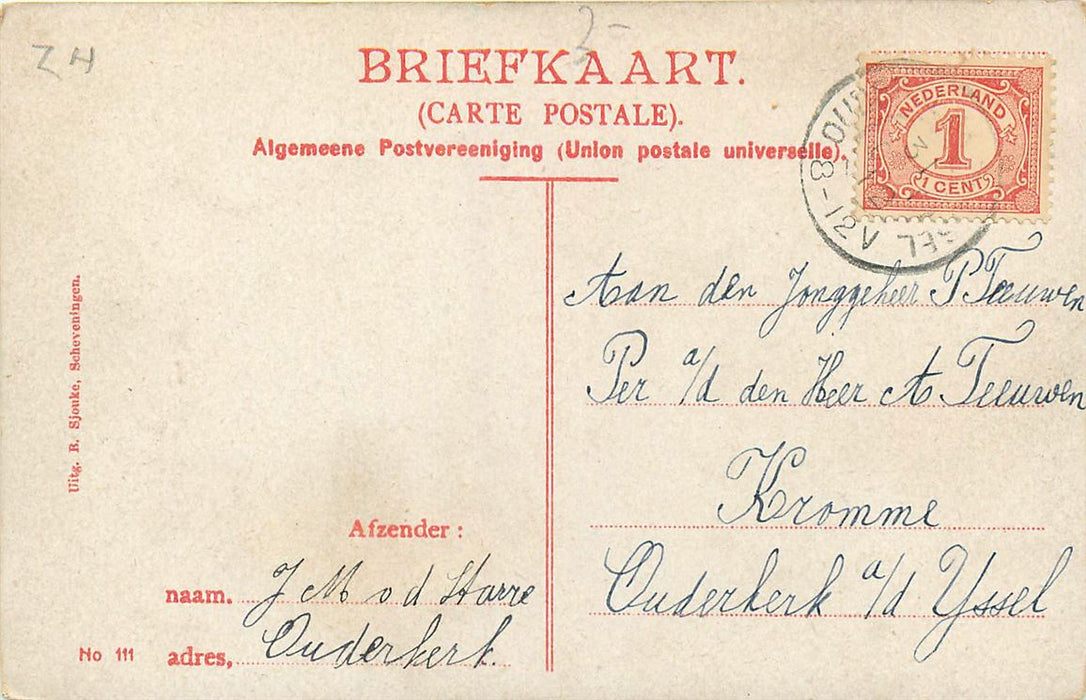 3-
ZH
BRIEFKAART.
(CARTE POSTALE).
Algemeene Postvereeniging (Union postale universelle).
NEDERLAND
1
1 CENT
8-12V
Aan den Jonggeheer P Teeuwen
Per a/d den Heer A Teeuwen
Kromme
Ouderkerk a/d Yssel
Uitg. B. Sjouke, Scheveningen.
Afzender:
naam. J M v d Starre
adres, Ouderkerk.
No 111